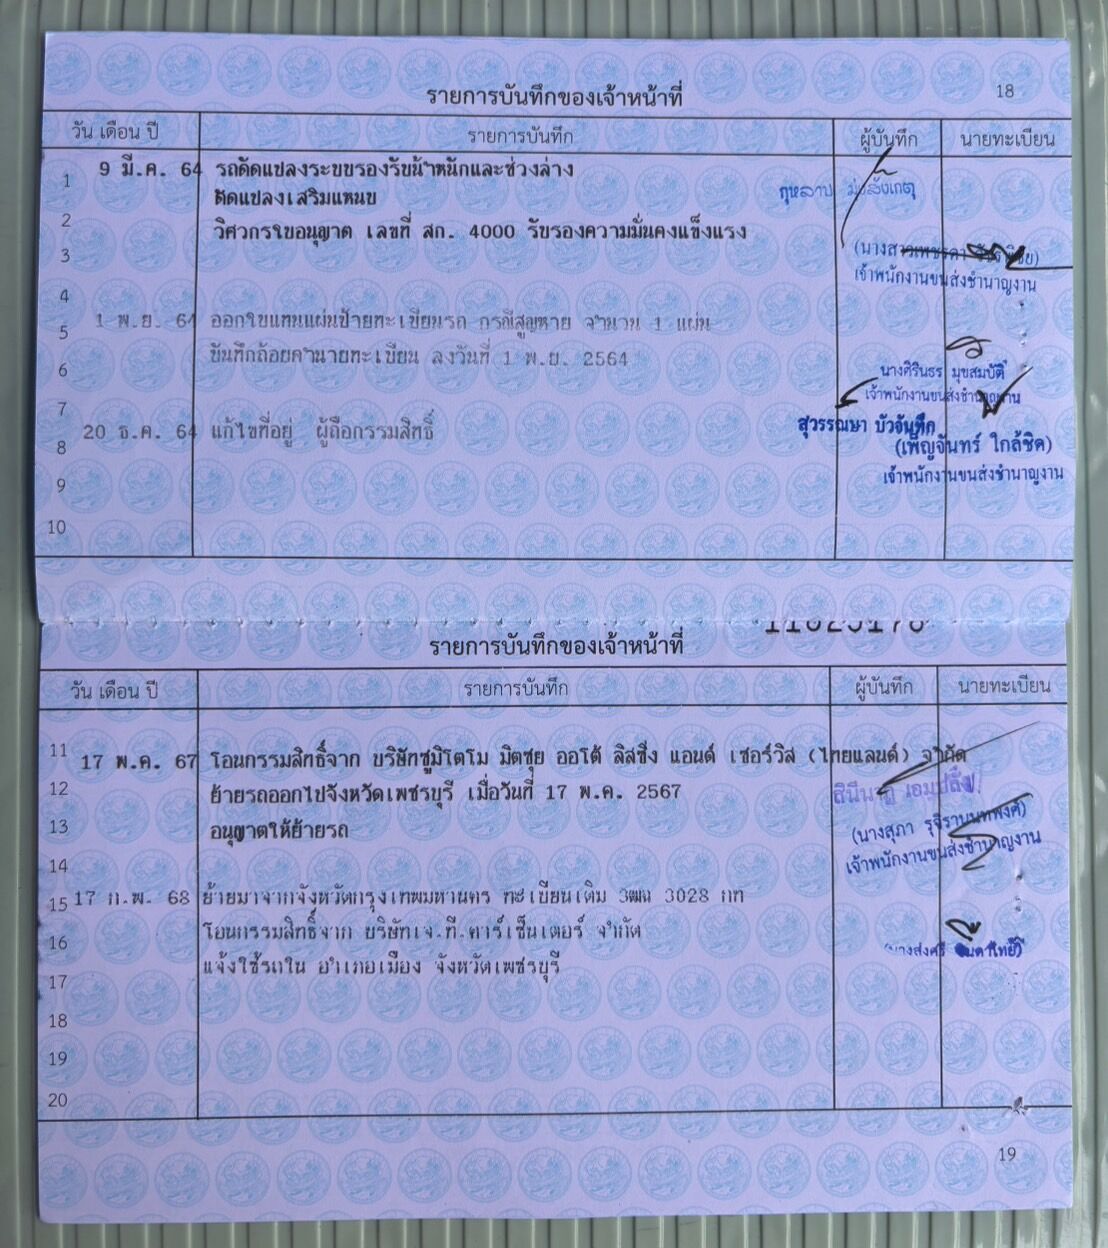 18
รายการบันทึกของเจ้าหน้าที่
วัน เดือน ปี รายการบันทึก ผู้บันทึก นายทะเบียน
1 9 มี.ค. 64 รถดัดแปลงระบบรองรับน้ำหนักและช่วงล่าง
ดัดแปลงเสริมแหนบ
กุหลาบ มุ่งสังเกตุ
2 วิศวกรใบอนุญาต เลขที่ สก. 4000 รับรองความมั่นคงแข็งแรง
3
(นางสาวเพชรดา
เจ้าพนักงานขนส่งชำนาญงาน
4
5 1 พ.ย. 64 ออกใบแทนแผ่นป้ายทะเบียนรถ กรณีสูญหาย จำนวน 1 แผ่น
6 บันทึกถ้อยคำนายทะเบียน ลงวันที่ 1 พ.ย. 2564
นางศิรินธร มุขสมบัติ
เจ้าพนักงานขนส่งชำนาญงาน
7
8 20 ธ.ค. 64 แก้ไขที่อยู่ ผู้ถือกรรมสิทธิ์
สุวรรณษา บัวจันทึก
(เพ็ญจันทร์ ใกล้ชิด)
เจ้าพนักงานขนส่งชำนาญงาน
9
10
รายการบันทึกของเจ้าหน้าที่
วัน เดือน ปี รายการบันทึก ผู้บันทึก นายทะเบียน
11 17 พ.ค. 67 โอนกรรมสิทธิ์จาก บริษัทซูมิโตโม มิตซุย ออโต้ ลิสซิ่ง แอนด์ เซอร์วิส (ไทยแลนด์) จำกัด
12 ย้ายรถออกไปจังหวัดเพชรบุรี เมื่อวันที่ 17 พ.ค. 2567
13 อนุญาตให้ย้ายรถ
(นางสุภา รุจิรานนทพงศ์)
เจ้าพนักงานขนส่งชำนาญงาน
14
15 17 ก.พ. 68 ย้ายมาจากจังหวัดกรุงเทพมหานคร ทะเบียนเดิม 3ฒฌ 3028 กท
16 โอนกรรมสิทธิ์จาก บริษัทเจ.ที.คาร์เซ็นเตอร์ จำกัด
17 แจ้งใช้รถใน อำเภอเมือง จังหวัดเพชรบุรี
(นางส่งศรี
18
19
20
19